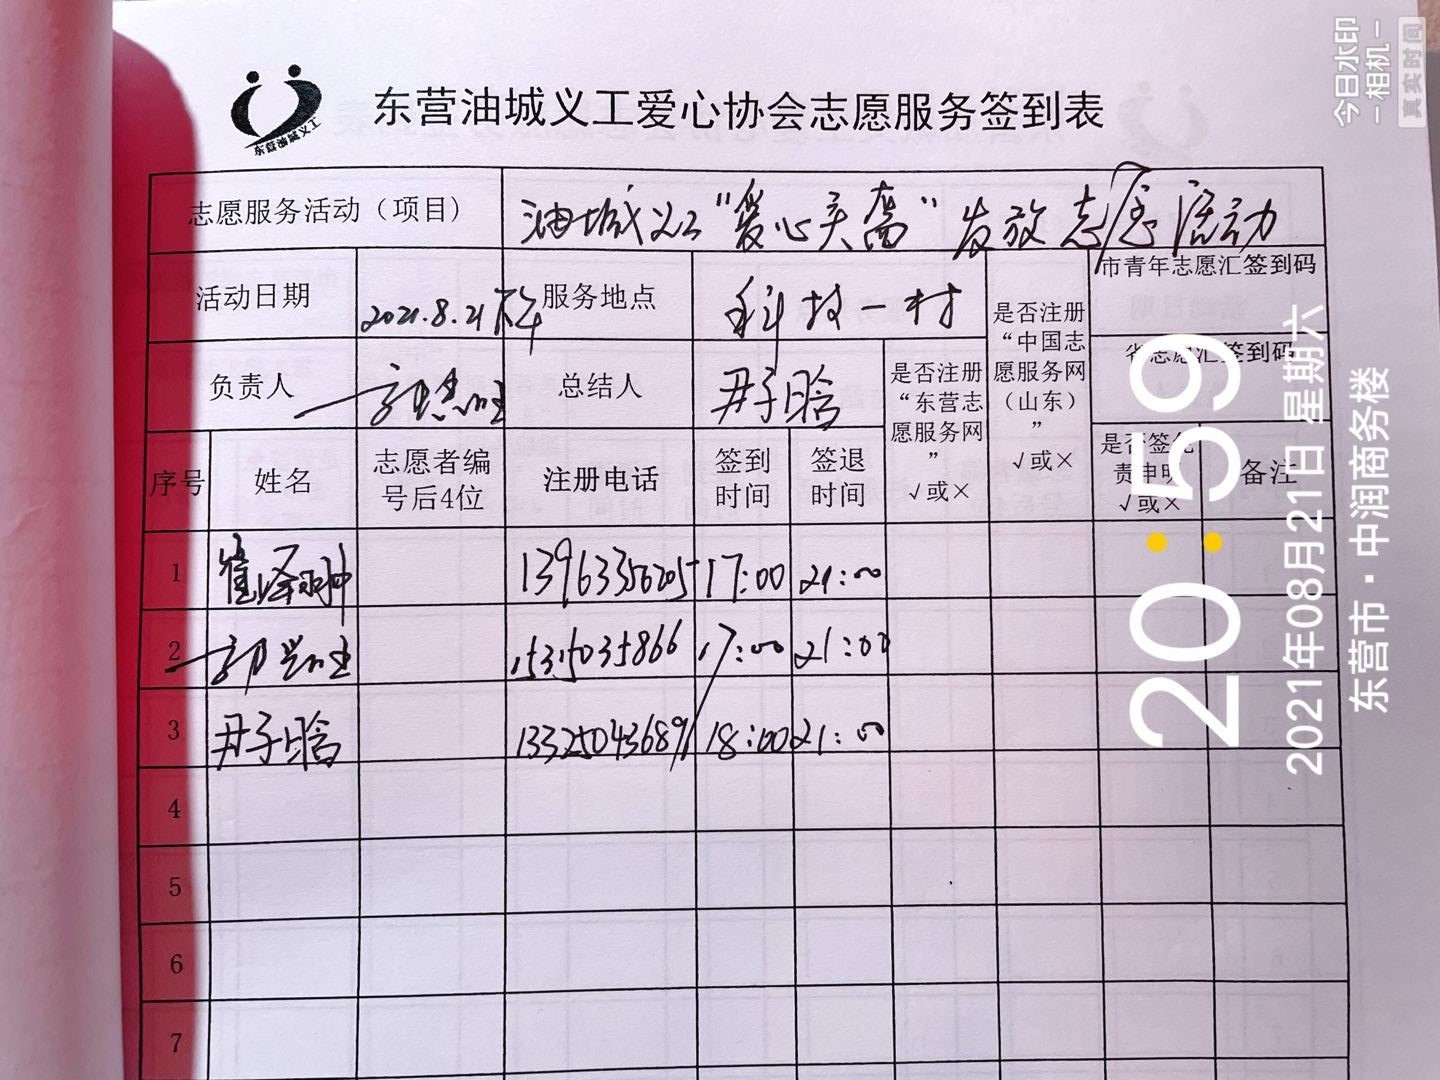 东营油城义工爱心协会志愿服务签到表
东营油城义工
志愿服务活动（项目） 油城义工“爱心夹克”发放志愿活动
活动日期 2021.8.21 服务地点 科技一村 是否注册“中国志愿服务网（山东）” √或× 市青年志愿汇签到码
负责人 总结人 尹子晗 是否注册“东营志愿服务网” √或× 省志愿汇签到码
序号 姓名 志愿者编号后4位 注册电话 签到时间 签退时间 是否签免责申明 √或× 备注
1 崔泽翀 13963356205 17:00 21:00
2 15315035866 17:00 21:00
3 尹子晗 13325043689 18:00 21:00
4
5
6
7
今日水印
相机
真实时间
20:59
2021年08月21日 星期六
东营市·中润商务楼